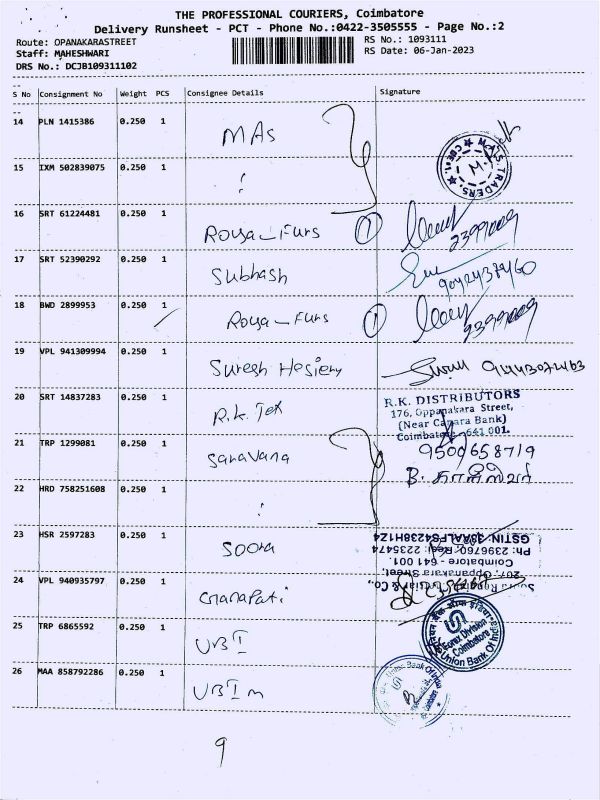 THE PROFESSIONAL COURIERS, Coimbatore
Delivery Runsheet - PCT - Phone No.:0422-3505555 - Page No.:2
Route: OPANAKARASTREET
Staff: MAHESHWARI
DRS No.: DCJB109311102
RS No.: 1093111
RS Date: 06-Jan-2023
S No Consignment No Weight PCS Consignee Details Signature
14 PLN 1415386 0.250 1 MAs
15 IXM 502839075 0.250 1
M.A.S. TRADERS
CBE-1.
16 SRT 61224481 0.250 1 Roya-Furs 1
17 SRT 52390292 0.250 1 Subhash
18 BWD 2899953 0.250 1 Roya-Furs 1
19 VPL 941309994 0.250 1 Suresh Hosiery
20 SRT 14837283 0.250 1 R.k. Tex
R.K. DISTRIBUTORS
176, Oppanakara Street,
(Near Canara Bank)
Coimbatore-641 001.
21 TRP 1299081 0.250 1 Saravana
22 HRD 758251608 0.250 1
23 HSR 2597283 0.250 1 Soora
Coimbatore - 641 001.
207, Oppanakara Street,
24 VPL 940935797 0.250 1 Ganapati
25 TRP 6865592 0.250 1 UBI
Forex Division
Coimbatore
Union Bank Of India
26 MAA 858792286 0.250 1 UBI m
Union Bank Of India
9